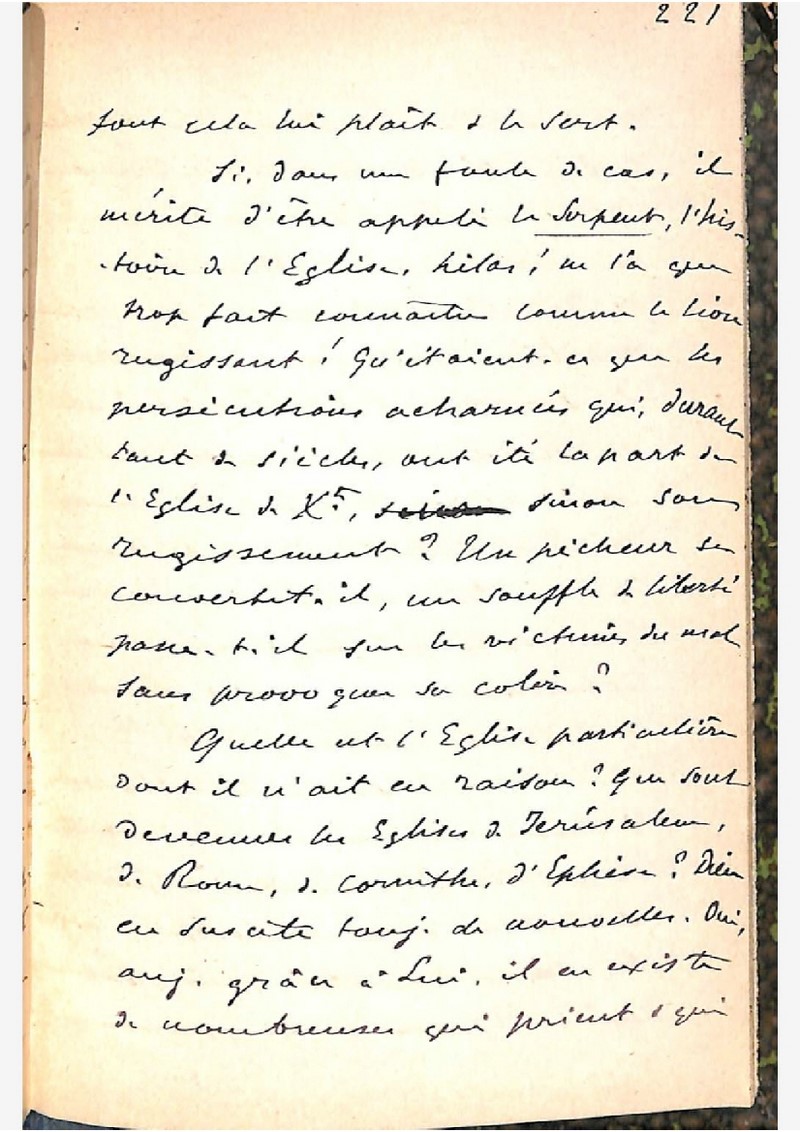 221
tout cela lui plaît & le sert.
Si, dans une foule de cas, il
mérite d'être appelé le Serpent, l'his-
-toire de l'Eglise, hélas! ne l'a que
trop fait connaître comme le lion
rugissant! Qu'étaient-ce que les
persécutions acharnées qui, durant
tant de siècles, ont été la part de
l'Eglise de Xt, sinon sinon son
rugissement? Un pécheur se
convertit-il, un souffle de liberté
passe-t-il sur les victimes du mal
sans provoquer sa colère?
Quelle est l'Eglise particulière
dont il n'ait eu raison? Que sont
devenues les Eglises de Jérusalem,
de Rome, de Corinthe, d'Ephèse? Dieu
en suscite touj. de nouvelles. Oui,
auj. grâce à Lui, il en existe
de nombreuses qui prient & qui